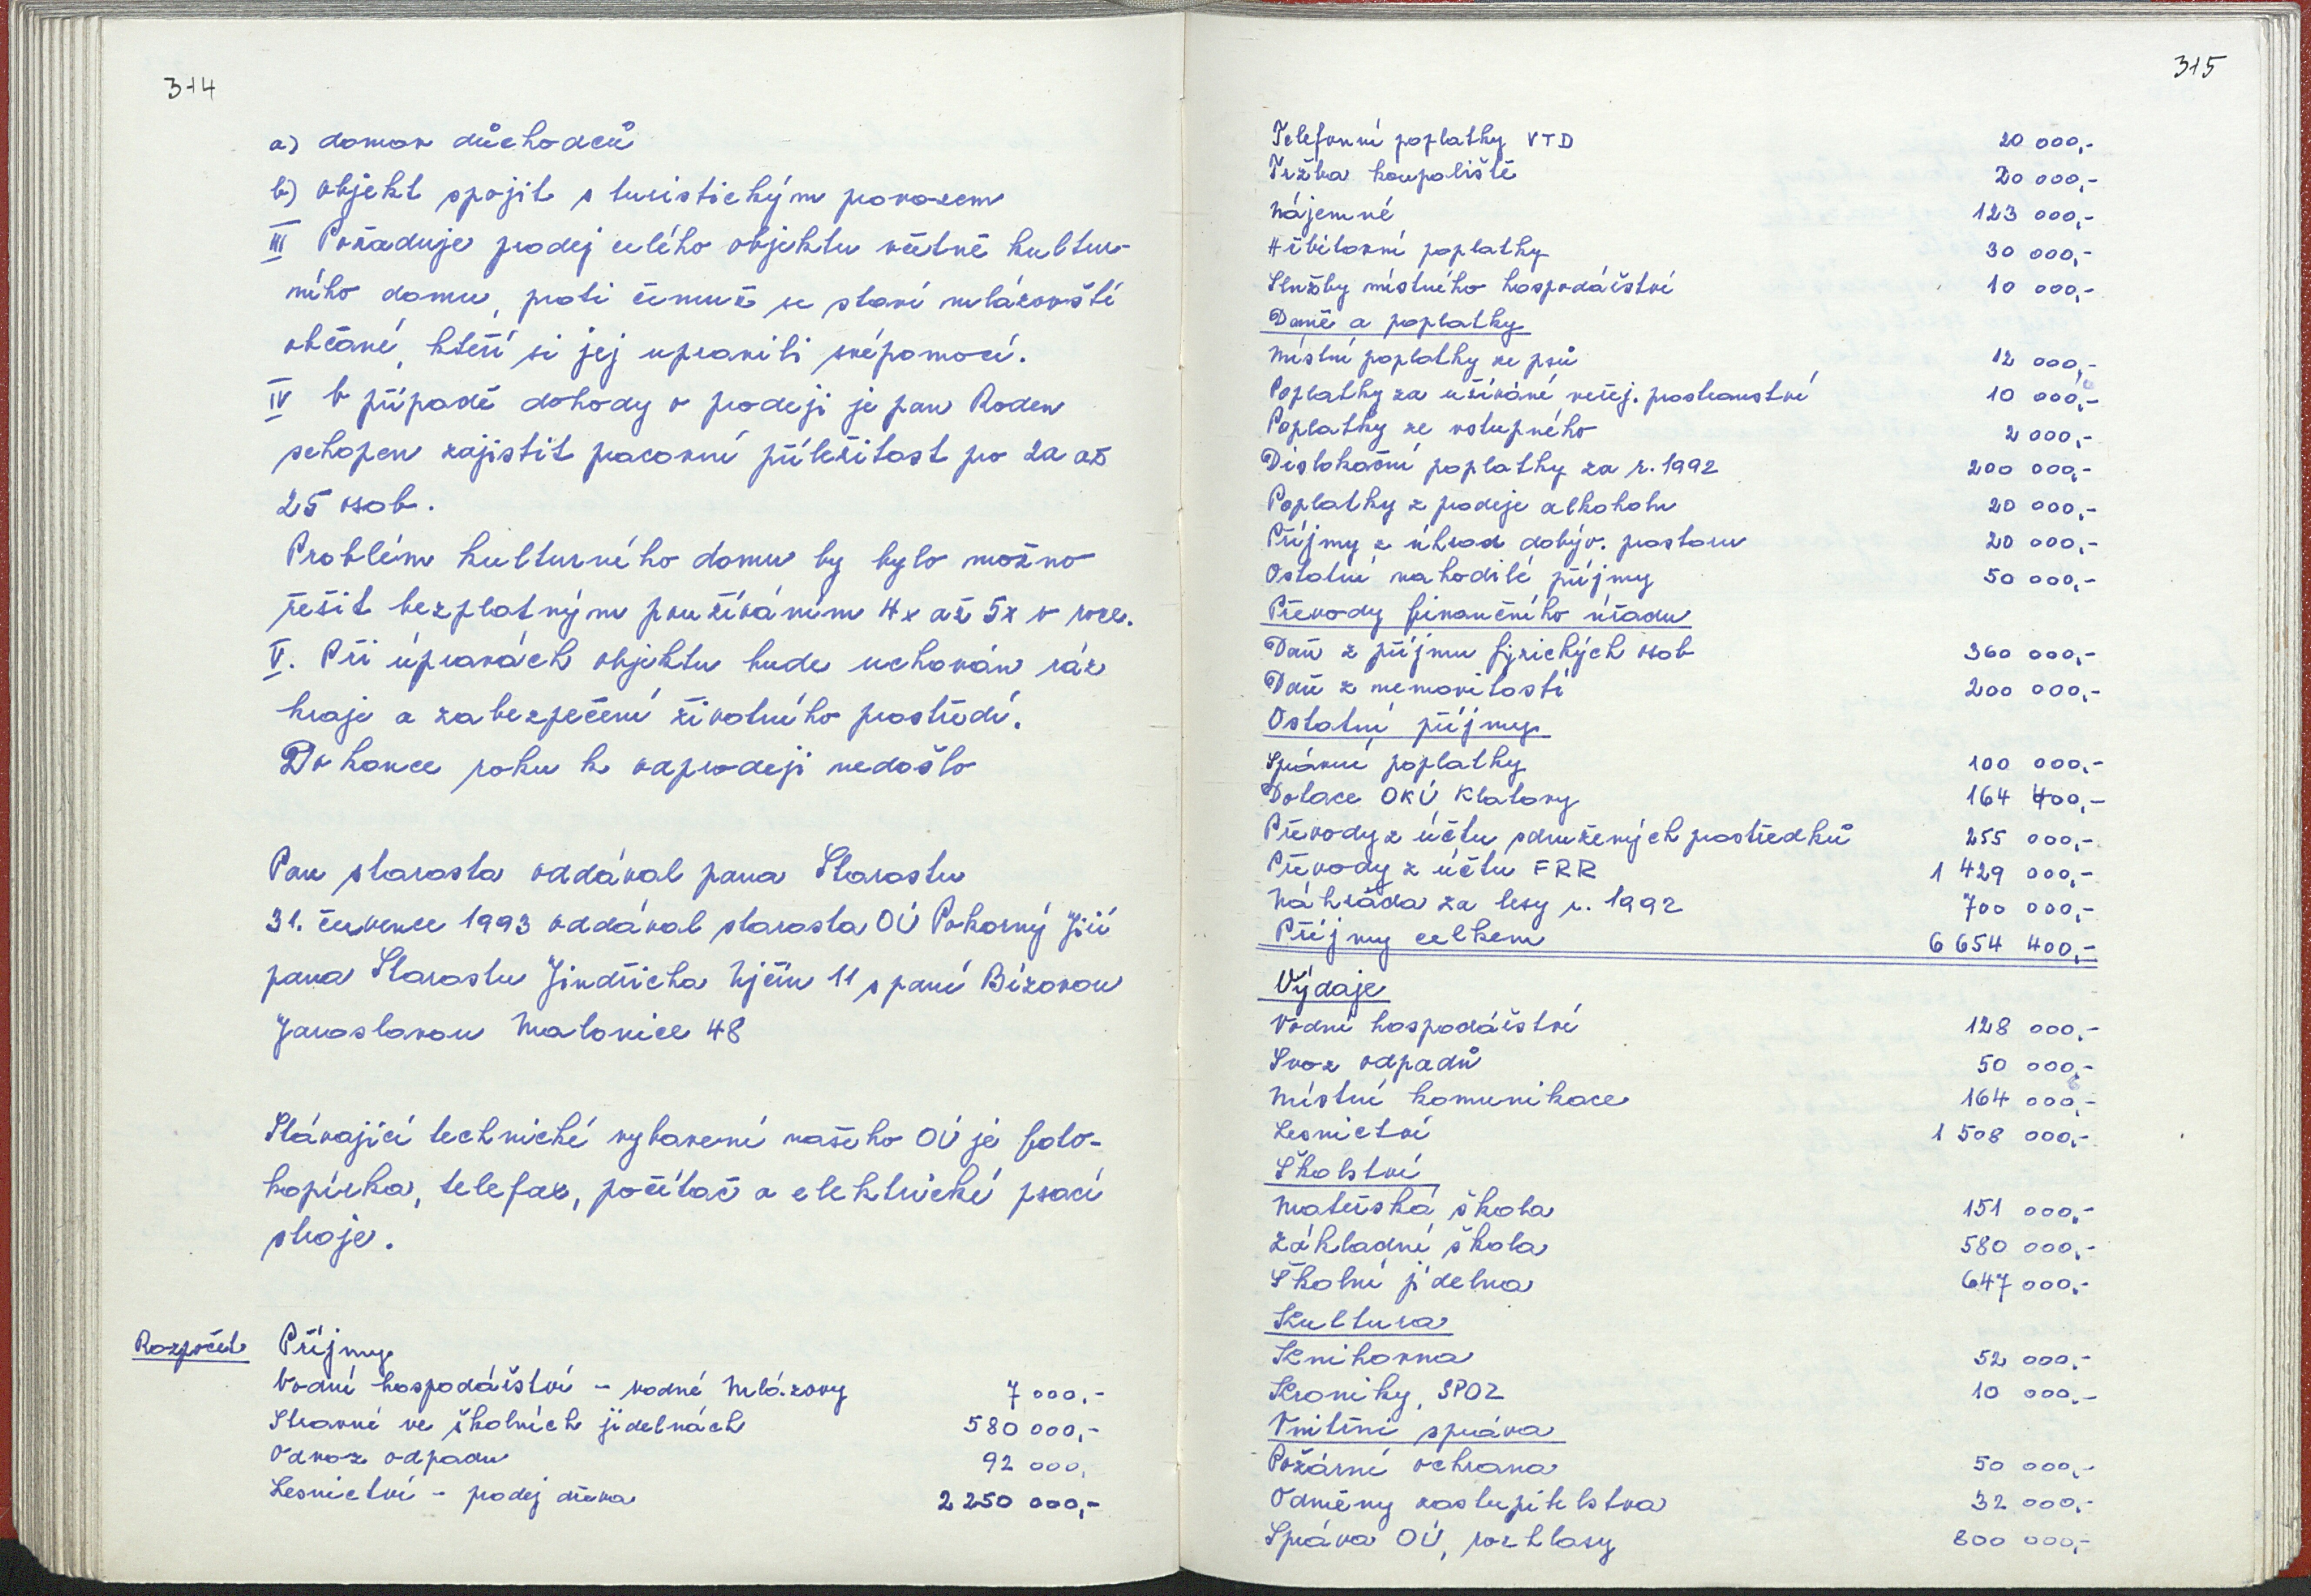 314
a) domov důchodců
b) objekt spojit s turistickým provozem
III Požaduje prodej celého objektu včetně kultur-
ního domu, proti čemuž se staví mlázovští
občané, kteří si jej upravili svépomocí.
IV V případě dohody o prodeji je pan Roden
schopen zajistit pracovní příležitost pro 20 až
25 osob.
Problém kulturního domu by bylo možno
řešit bezplatným používáním 4x až 5x v roce.
V. Při úpravách objektu bude uchován ráz
kraje a zabezpečení životního prostředí.
Do konce roku k odprodeji nedošlo
Pan starosta oddával pana Starostu
31. července 1993 oddával starosta OÚ Pokorný Jiří
pana Starostu Jindřicha Mjčín 11 s paní Bízovou
Jaroslavou Malonice 48
Stávající technické vybavení našeho OÚ je foto-
kopírka, telefax, počítač a elektrické psací
stroje.
Rozpočet Příjmy
Vodní hospodářství - vodné Mlázovy 7 000,-
Stravné ve školních jídelnách 580 000,-
Odvoz odpadu 92 000,
Lesnictví - prodej dřeva 2 250 000,-
315
Telefonní poplatky VTD 20 000,-
Tržba koupaliště 20 000,-
Nájemné 123 000,-
Hřbitovní poplatky 30 000,-
Služby místního hospodářství 10 000,-
Daně a poplatky
Místní poplatky ze psů 12 000,-
Poplatky za užívání veřej. prostranství 10 000,-
Poplatky ze vstupného 2 000,-
Dislokační poplatky za r. 1992 200 000,-
Poplatky z prodeje alkoholu 20 000,-
Příjmy z úhrad dobýv. prostoru 20 000,-
Ostatní nahodilé příjmy 50 000,-
Převody finančního úřadu
Daň z příjmu fyzických osob 360 000,-
Daň z nemovitostí 200 000,-
Ostatní příjmy
Správní poplatky 100 000,-
Dotace OKÚ Klatovy 164 400,-
Převody z účtu sdružených prostředků 255 000,-
Převody z účtu FRR 1 429 000,-
Náhrada za lesy r. 1992 700 000,-
Příjmy celkem 6 654 400,-
Výdaje
Vodní hospodářství 128 000,-
Svoz odpadů 50 000,-
Místní komunikace 164 000,-
Lesnictví 1 508 000,-
Školství
Mateřská škola 151 000,-
Základní škola 580 000,-
Školní jídelna 647 000,-
Kultura
Knihovna 52 000,-
Kroniky, SPOZ 10 000,-
Vnitřní správa
Požární ochrana 50 000,-
Odměny zastupitelstva 32 000,-
Správa OÚ, rozhlasy 800 000,-